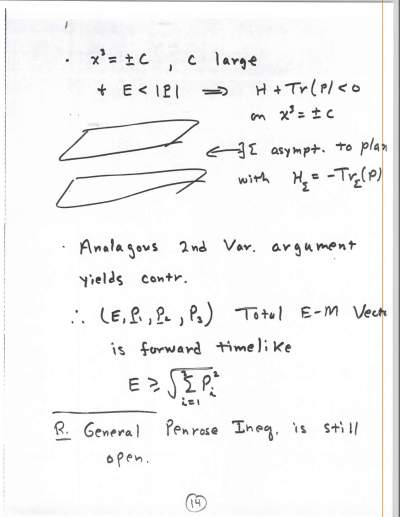 · x³ = ± C , C large
+ E < |P| ⟹ H + Tr(P) < 0
on x³ = ± C
∃ Σ asympt. to plan
with H_Σ = -Tr_Σ(P)
· Analagous 2nd Var. argument
yields contr.
∴ (E, P₁, P₂, P₃) Total E-M Vect
is forward timelike
E ≥ √(Σ_{i=1}^{3} P_i²)
R. General Penrose Ineq. is still
open.
14